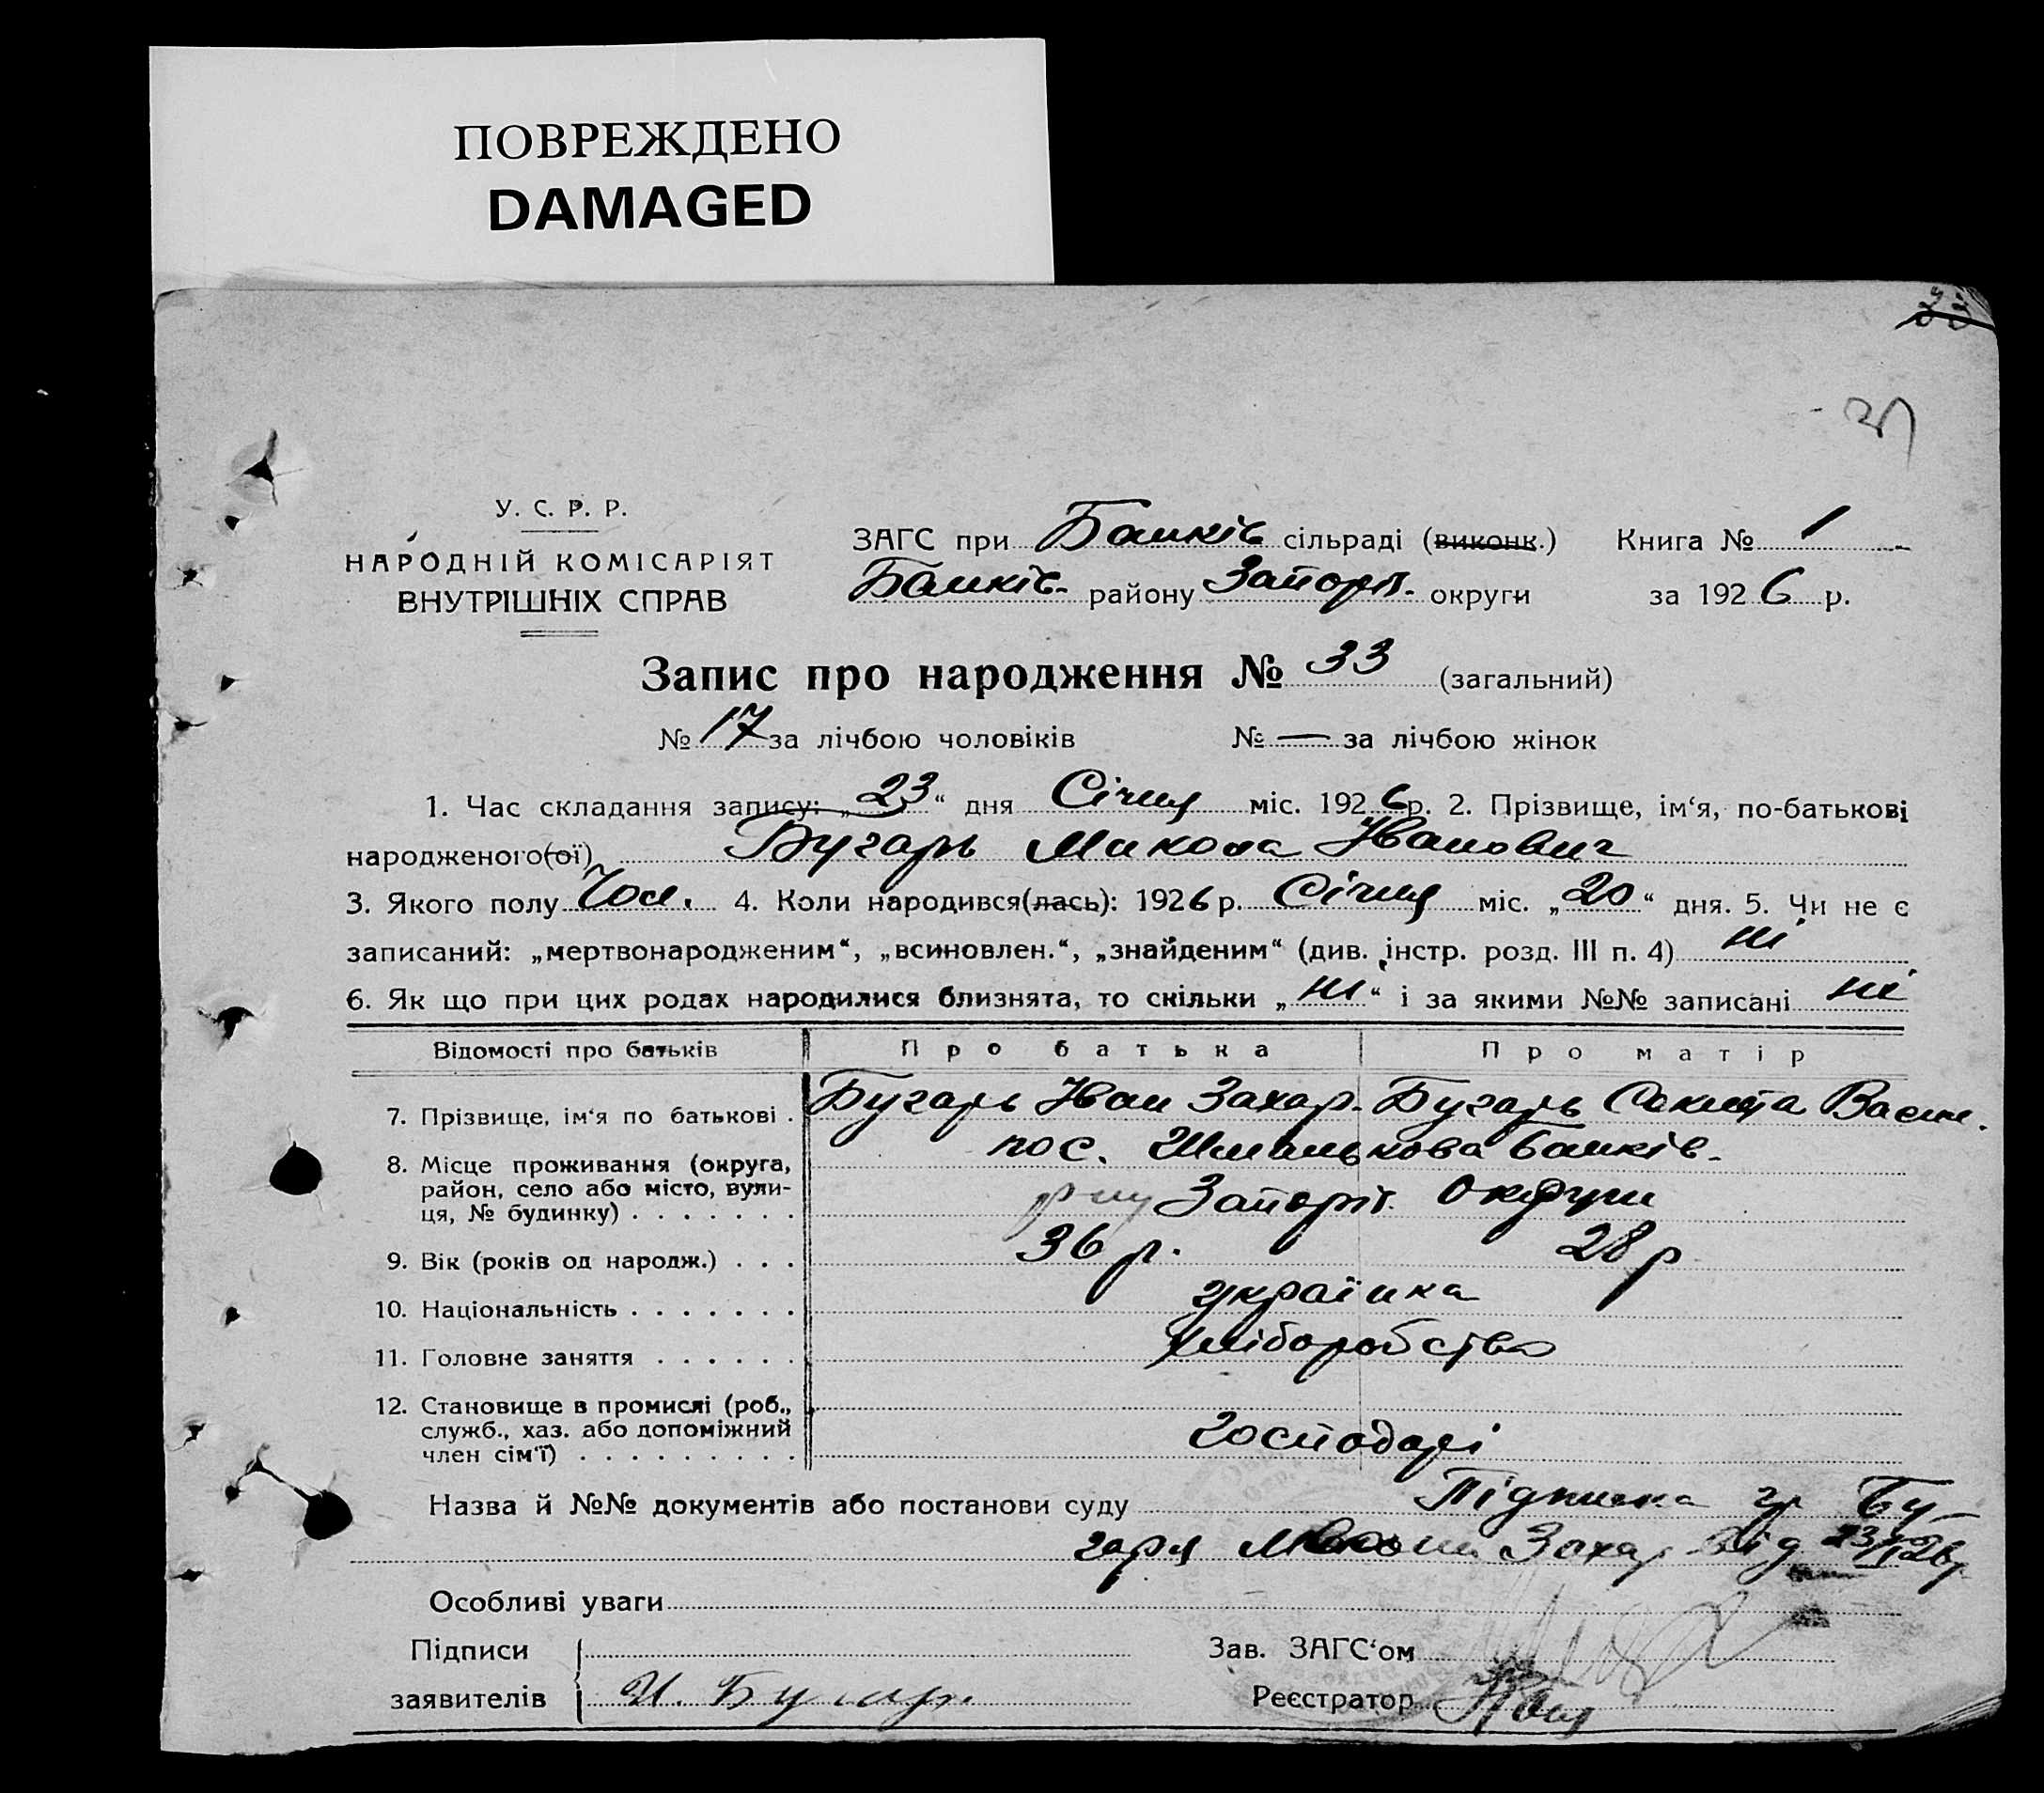 ПОВРЕЖДЕНО
DAMAGED
У. С. Р. Р.
НАРОДНІЙ КОМІСАРІЯТ
ВНУТРІШНІХ СПРАВ
ЗАГС при Башків сільраді (виконк.) Книга № 1
Башків. району Запоріз. округи за 1926 р.
Запис про народження № 33 (загальний)
№ 17 за лічбою чоловіків № — за лічбою жінок
1. Час складання запису: „23“ дня Січня міс. 1926 р. 2. Прізвище, ім‘я, по-батькові
народженого(ої) Бугарь Микола Иванович
3. Якого полу Чол. 4. Коли народився(лась): 1926 р. Січня міс. „20“ дня. 5. Чи не є
записаний: „мертвонародженим“, „всиновлен.“, „знайденим“ (див. інстр. розд. III п. 4) ні
6. Як що при цих родах народилися близнята, то скільки „ні“ і за якими №№ записані ні
Відомості про батьків Про батька Про матір
7. Прізвище, ім‘я по батькові . Бугарь Иван Захар. Бугарь Васил.
8. Місце проживання (округа, пос. Шманькова Башків.
район, село або місто, вули- р-ну Запоріз. Округи
ця, № будинку) . . . . . . .
9. Вік (років од народж.) . . . 36 р. 28 р
10. Національність . . . . . . . українка
11. Головне заняття . . . . . . хліборобство
12. Становище в промислі (роб.,
служб., хаз. або допоміжний господарі
член сім‘ї) . . . . . . . . .
Назва й №№ документів або постанови суду Підписка гр Бу-
гаря Захар від 23/I 26р
Особливі уваги
Підписи Зав. ЗАГС‘ом
заявителів И. Бугарь Реєстратор